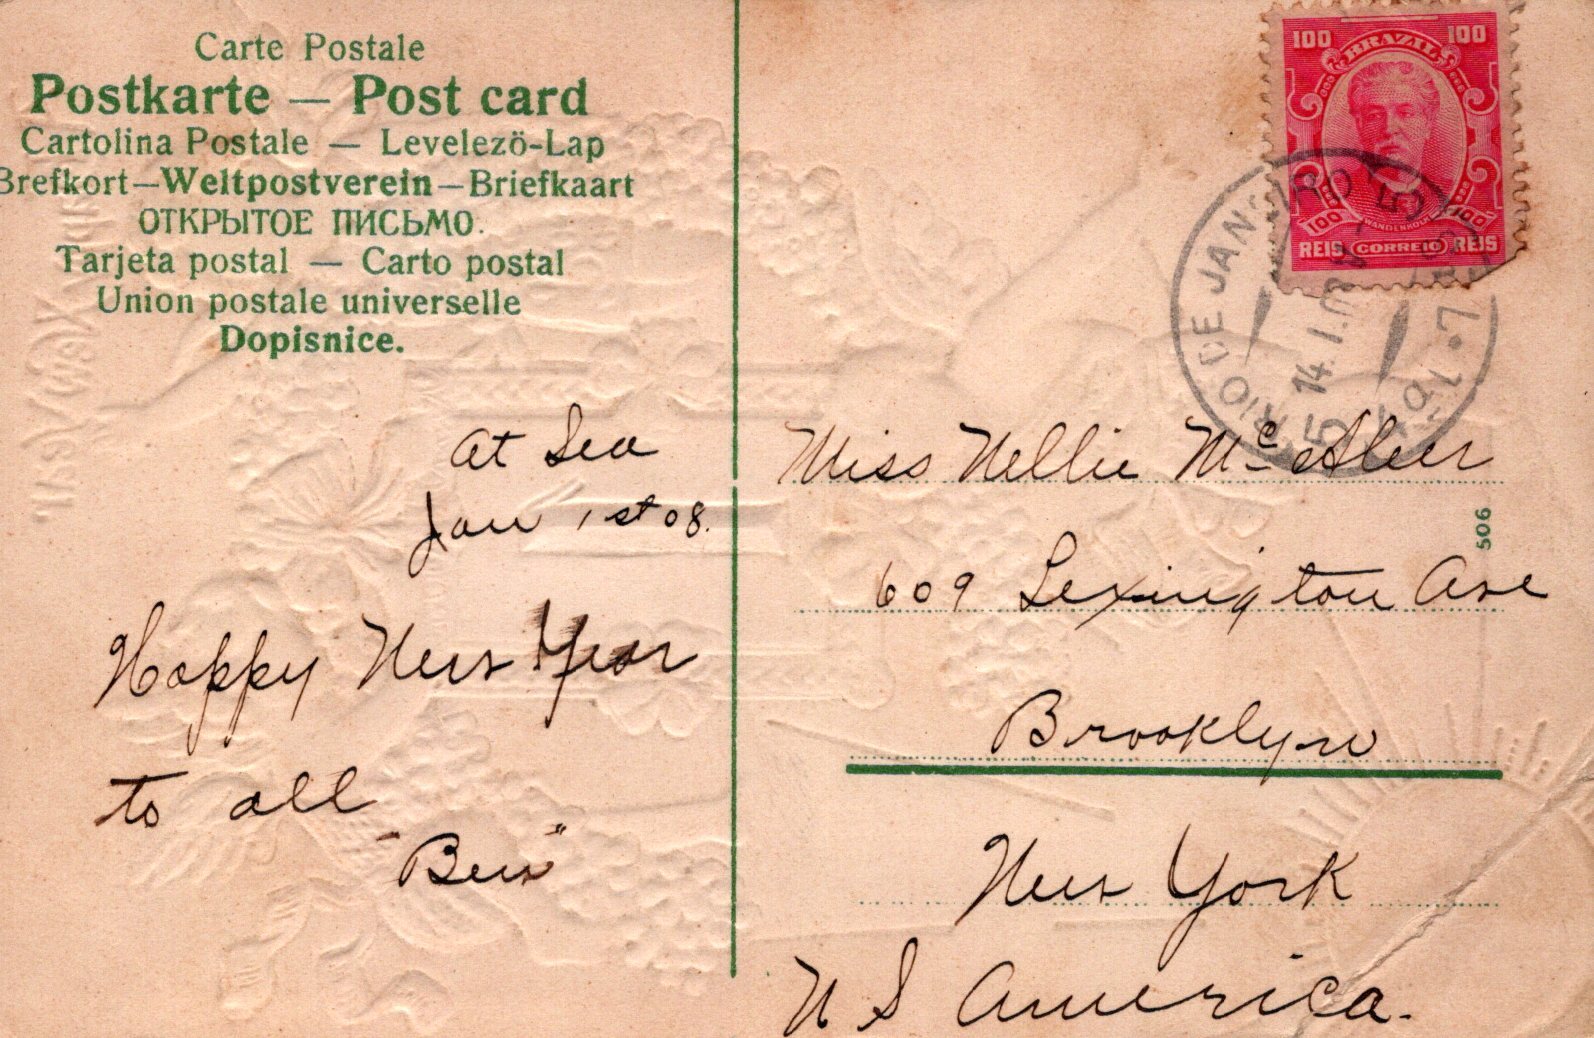 Carte Postale
Postkarte — Post card
Cartolina Postale — Levelezö-Lap
Brefkort—Weltpostverein—Briefkaart
ОТКРЫТОЕ ПИСЬМО.
Tarjeta postal — Carto postal
Union postale universelle
Dopisnice.
At Sea
Jan 1st 08.
Happy New Year
to all
"Ben"
100 BRAZIL 100
100 WANDENKOLK 100
REIS CORREIO REIS
RIO DE JANEIRO
14.1.08
5
Miss Nellie Mc Aleer
506
609 Lexington Ave
Brooklyn
New York
U S America.